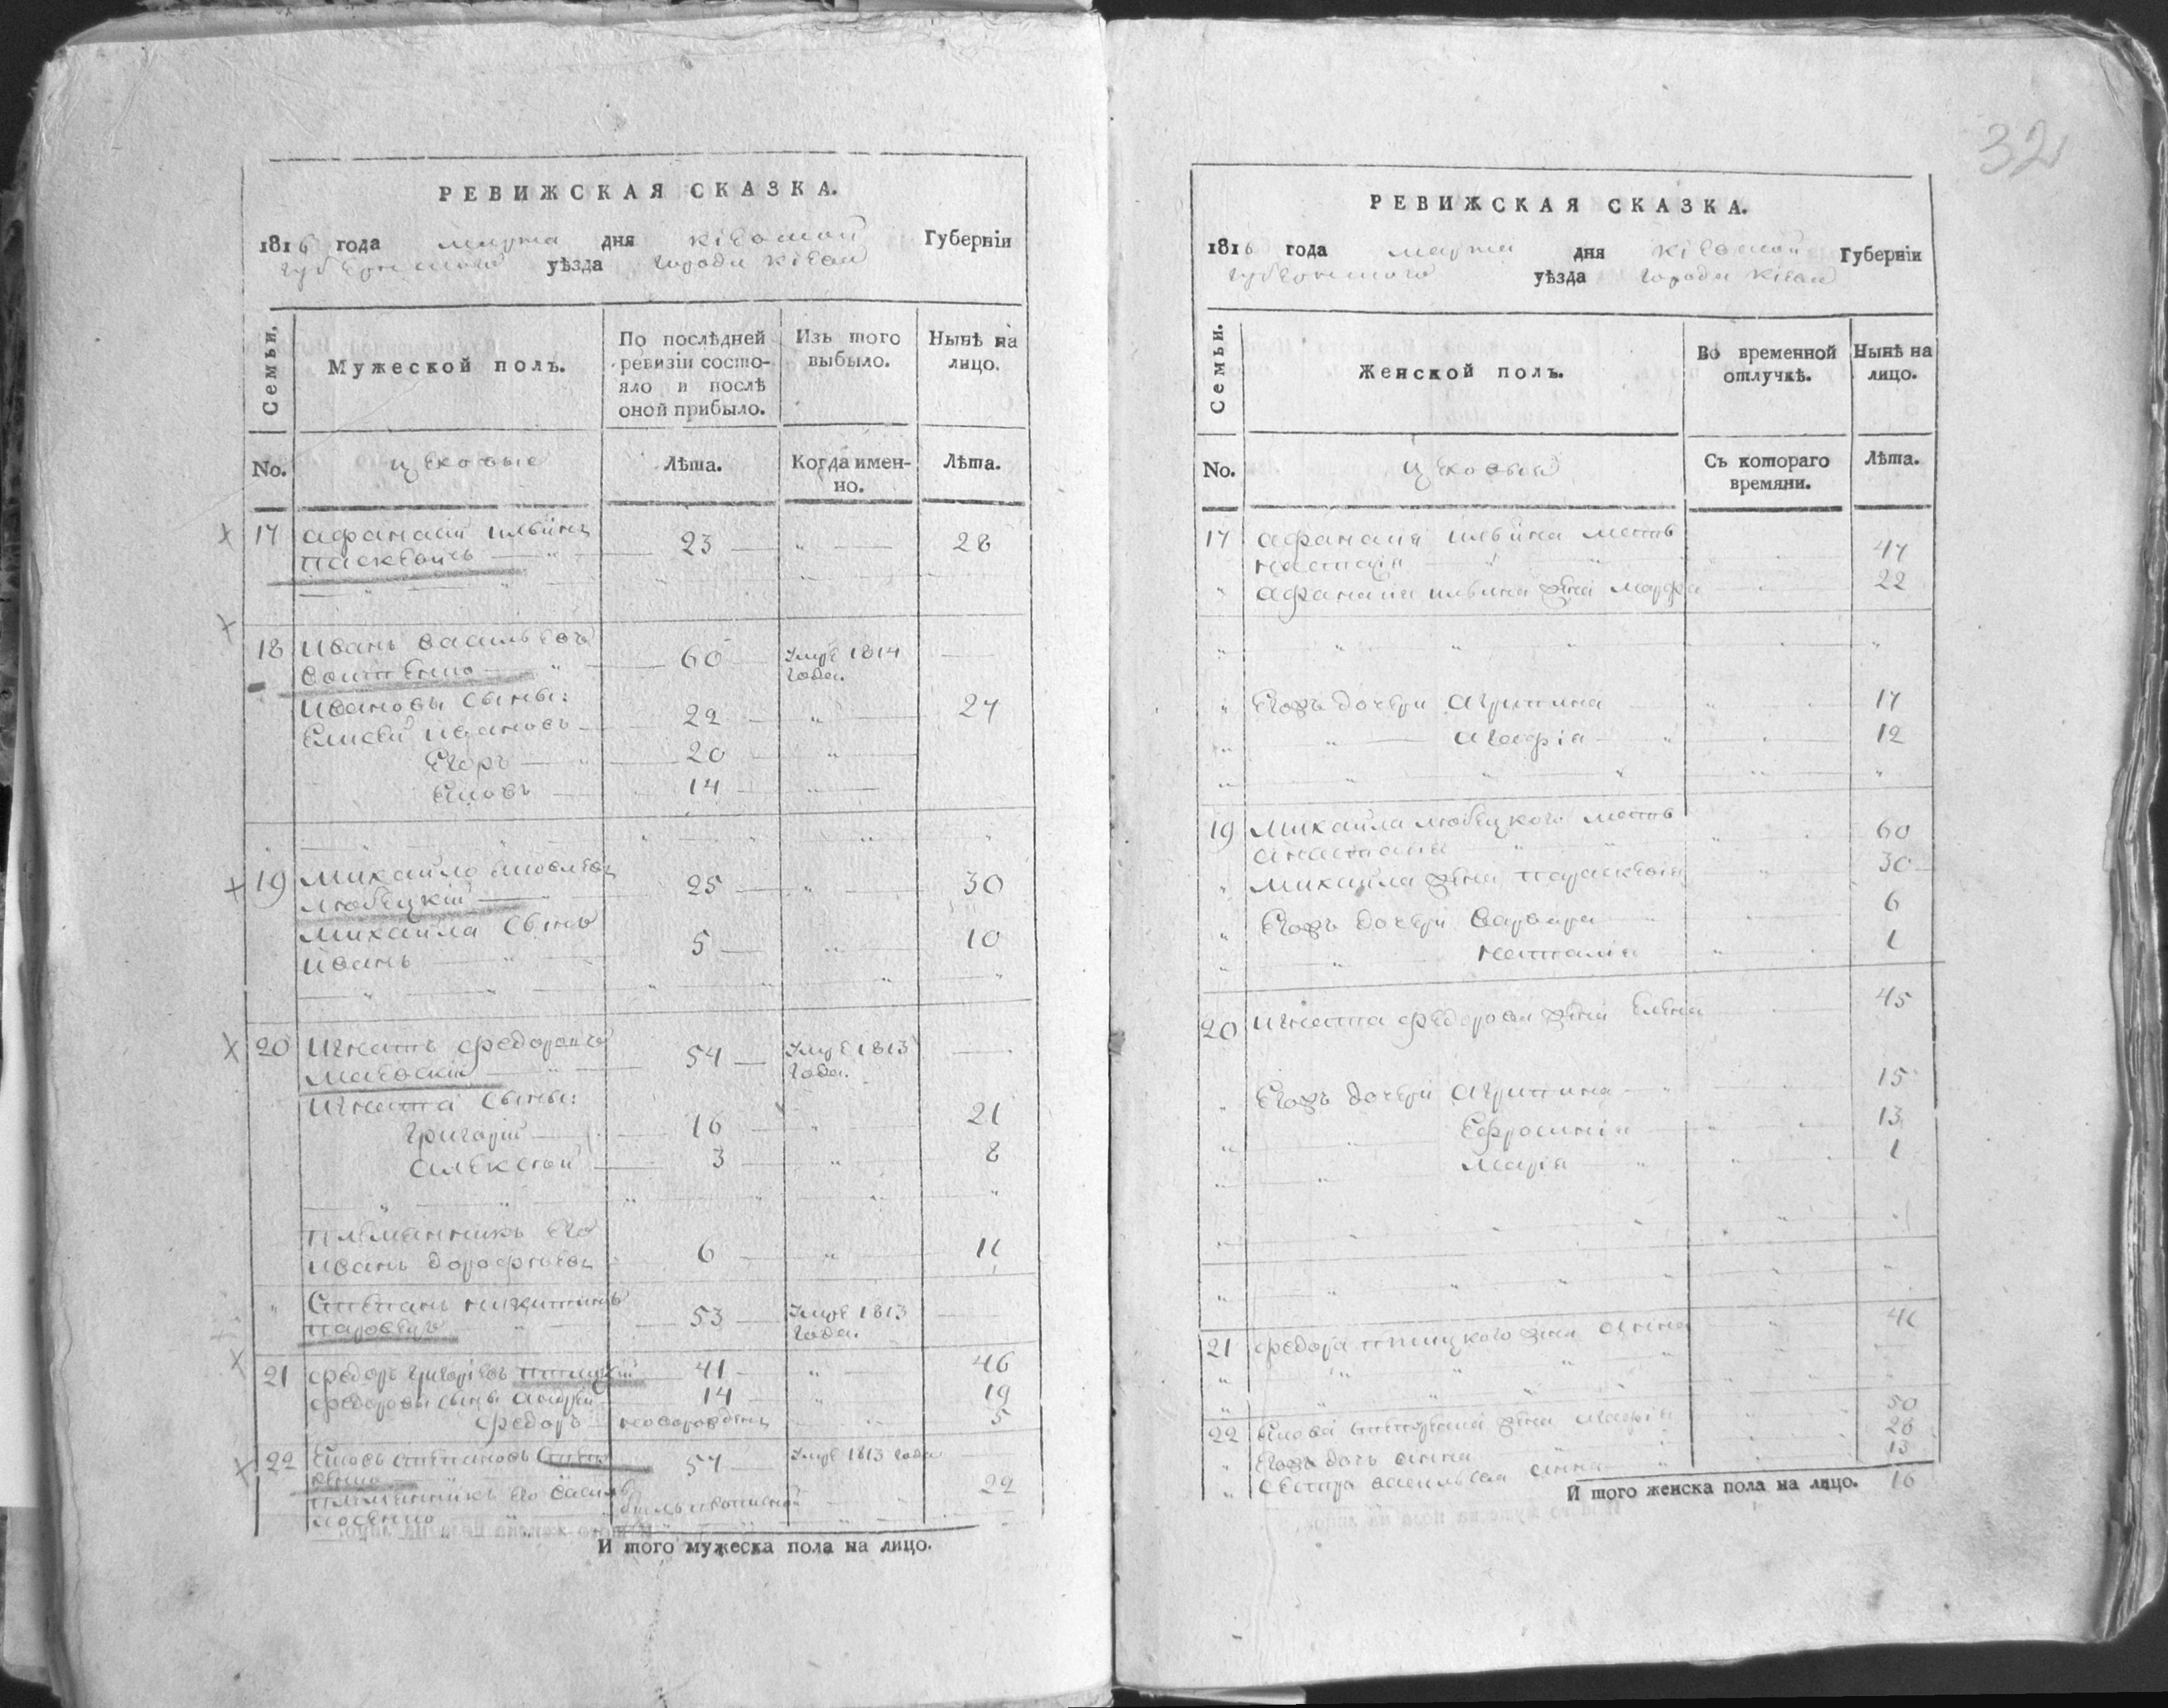 РЕВИЖСКАЯ СКАЗКА.
1816 года марта дня Кіевской Губерніи
Губернского уѣзда города Кіева
Семьи.
Мужеской полъ.
По послѣдней ревизіи состо-
яло и послѣ
оной прибыло.
Изъ того
выбыло.
Нынѣ на
лицо.
No. цеховые Лѣта. Когда имен-
но. Лѣта.
17 Афанасій Ильинъ
Паскевичъ 23 28
18 Иванъ Васильевъ
60 Умре 1814
года.
Ивановы сыны:
Елисей Ивановъ 22 27
Егоръ 20
Яковъ 14
19 Михайло Яковлевъ
Любецкій 25 30
Михайла сынъ
Иванъ 5 10
20 Игнатъ Федоровъ
54 Умре 1813
года.
Игната сыны:
Григорій 16 21
Алексѣй 3 8
Племянникъ его
Иванъ Дорофѣевъ 6 11
Степанъ Никитинъ
53 Умре 1813
года.
21 Федоръ Григоріевъ Птицкій 41 46
Федоровы сыны Андрей 14 19
Федоръ новорожденъ 5
22 Яковъ Степановъ
57 Умре 1813 года
Племянникъ его Василь
22
И того мужеска пола на лицо.
32
РЕВИЖСКАЯ СКАЗКА.
1816 года марта дня Кіевской Губерніи
Губернского уѣзда города Кіева
Семьи.
Женской полъ.
Во временной
отлучкѣ.
Нынѣ на
лицо.
No. цеховые Съ котораго
времяни. Лѣта.
17 Афанасія Ильина мать
Настасія 47
Афанасія Ильина жена Марфа 22
Егожъ дочери Агрипина 17
Агафія 12
19 Михайла Любецкого мать
Анастасія 60
Михайла жена Параскевія 30
Егожъ дочери Варвара 6
Наталія 1
20 Игната Федорова жена Елена 45
Егожъ дочери Агрипина 15
Ефросинія 13
Марія 1
21 Федора Птицкого жена Анна 41
22 Якова жена Агафія 50
Егожъ дочь Анна 28
Сестра Васильева Анна 13
16
И того женска пола на лицо.